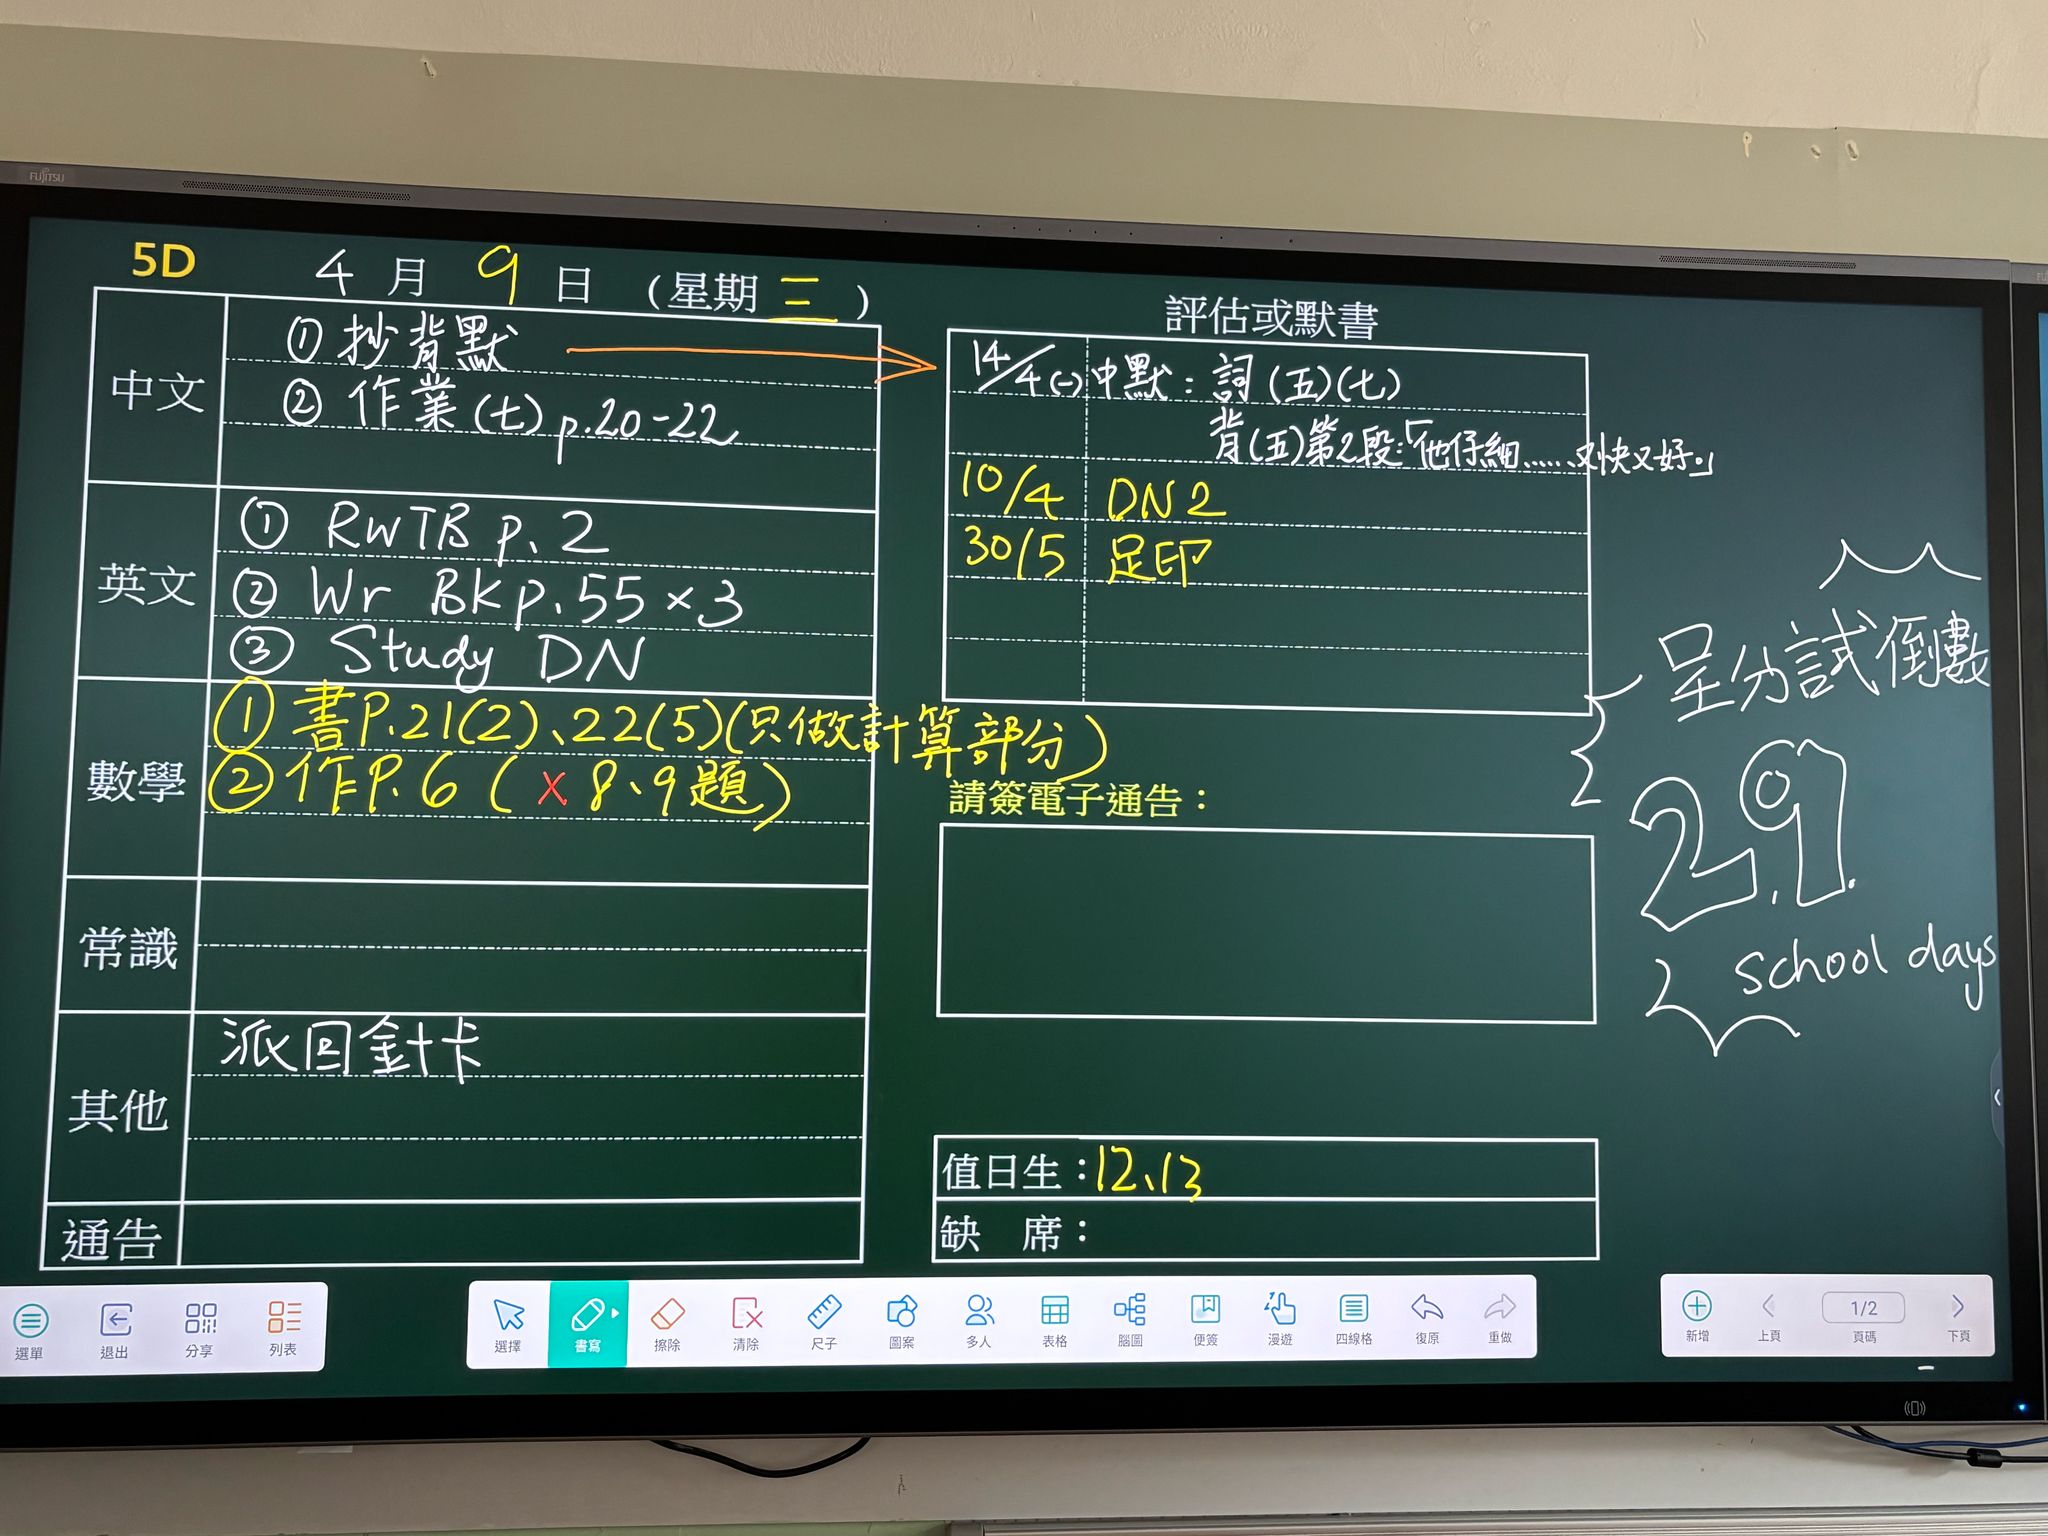 FUJITSU
5D 4月9日(星期三)
中文
①抄背默
②作業(七)p.20-22
英文
① RWTB p.2
② Wr BK p.55×3
③ Study DN
數學
①書P.21(2)、22(5)(只做計算部分)
②作P.6(×8、9題)
常識
其他
派回金卡
通告
評估或默書
14/4(一) 中默：詞(五)(七)
背(五)第2段：「他仔細......又快又好。」
10/4 DN2
30/5 足印
請簽電子通告：
值日生：12、13
缺 席：
呈分試倒數
29
school days
選單 退出 分享 列表
選擇 書寫 擦除 清除 尺子 圖案 多人 表格 腦圖 便簽 漫遊 四線格 復原 重做
新增 上頁 1/2 頁碼 下頁